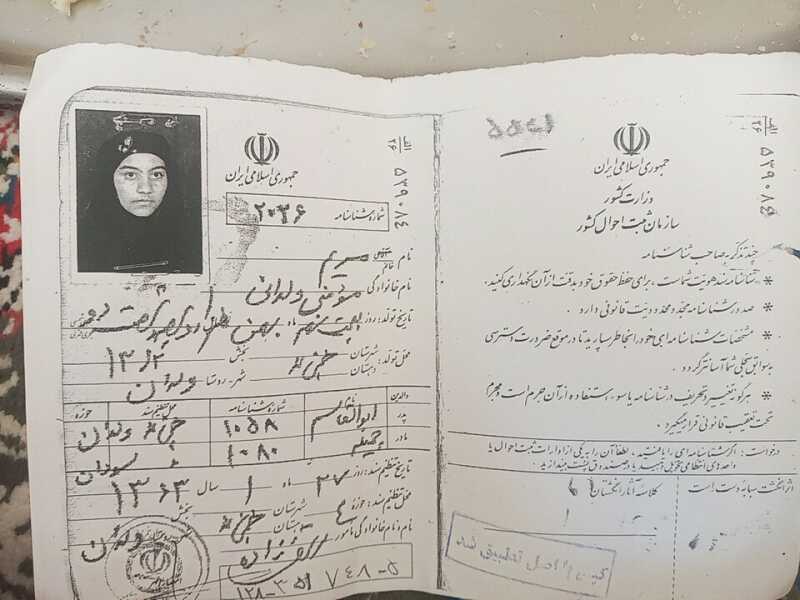 جمهوری اسلامی ایران
شماره شناسنامه ۲۰۳۶
نام آقای خانم مریم
نام خانوادگی مؤمنی ولدانی
تاریخ تولد: روز بیست نهم ماه بهمن
۱۳۶۲
محل تولد: شهرستان بخش
دهستان شهر-روستا ولدان
والدین نام شماره شناسنامه محل تنظیم سند حوزه
پدر ابوالقاسم ۱۰۵۸ ولدان
مادر ۱۰۸۰
تاریخ تنظیم سند: روز ۲۷ ماه ۱ سال ۱۳۶۳
محل تنظیم سند: حوزه ۴ شهرستان بخش
دهستان ولدان
نام و نام خانوادگی مأمور
۱۲۸-۳۵۱ ۷۴۸-۵
الف ۲۶ ۵۲۹۰۸۴
جمهوری اسلامی ایران
وزارت کشور
سازمان ثبت احوال کشور
چند تذکر به صاحب شناسنامه
* شناسنامه سند هویت شماست، برای حفظ حقوق خود بدقت از آن نگهداری کنید.
* صدور شناسنامه مجدد محدودیت قانونی دارد.
* مشخصات شناسنامه‌ای خود را بخاطر بسپارید تا در موقع ضرورت دسترسی
به سوابق سجلی شما آسانتر گردد.
* هرگونه تغییر و تحریف در شناسنامه یا سوء استفاده از آن جرم است و مجرم
تحت تعقیب قانونی قرار میگیرد.
درخواست: اگر شناسنامه‌ای را یافتید، لطفاً آن را به یکی از ادارات ثبت احوال یا
واحدهای انتظامی تحویل دهید یا در صندوق پست بیندازید.
اثر انگشت سبابه دست است کلاسه آثار انگشتان
کپی با اصل تطبیق شد